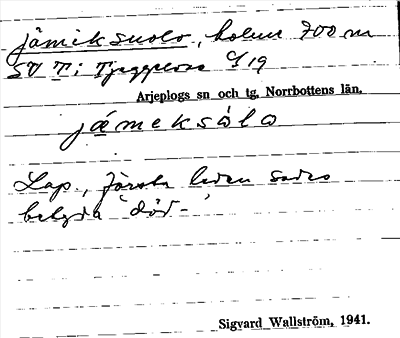 jämiksuolo, holme 700 m
SV T; Tjeggelvas C/19
Arjeplogs sn och tg, Norrbottens län.
jämeksålo
Lap., första leden sades
betyda "död-"
Sigvard Wallström, 1941.